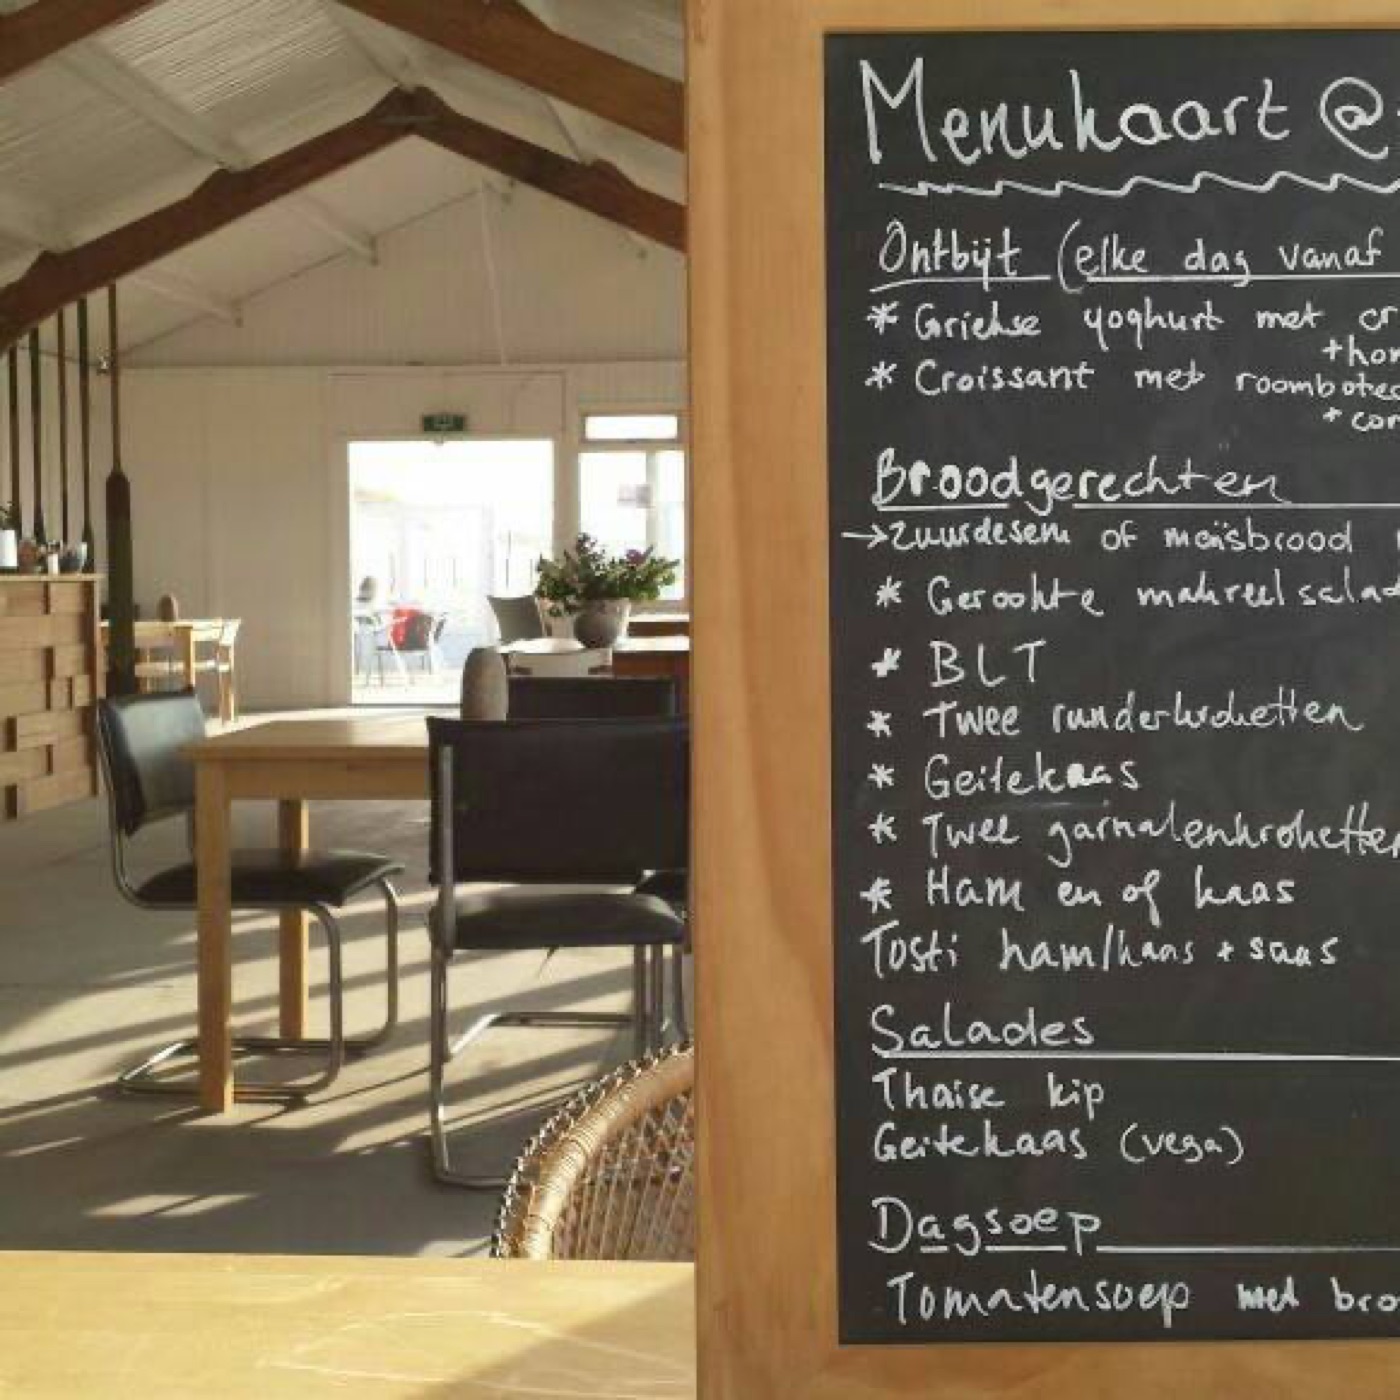 Menukaart @
Ontbijt (elke dag vanaf
* Griekse yoghurt met cr
+hon
* Croissant met roomboter
+ con
Broodgerechten
→Zuurdesem of maïsbrood
* Gerookte makreelsalad
* BLT
* Twee runderkroketten
* Geitekaas
* Twee garnalenkroketten
* Ham en of kaas
Tosti ham/kaas + saus
Salades
Thaise kip
Geitekaas (vega)
Dagsoep
Tomatensoep met bro